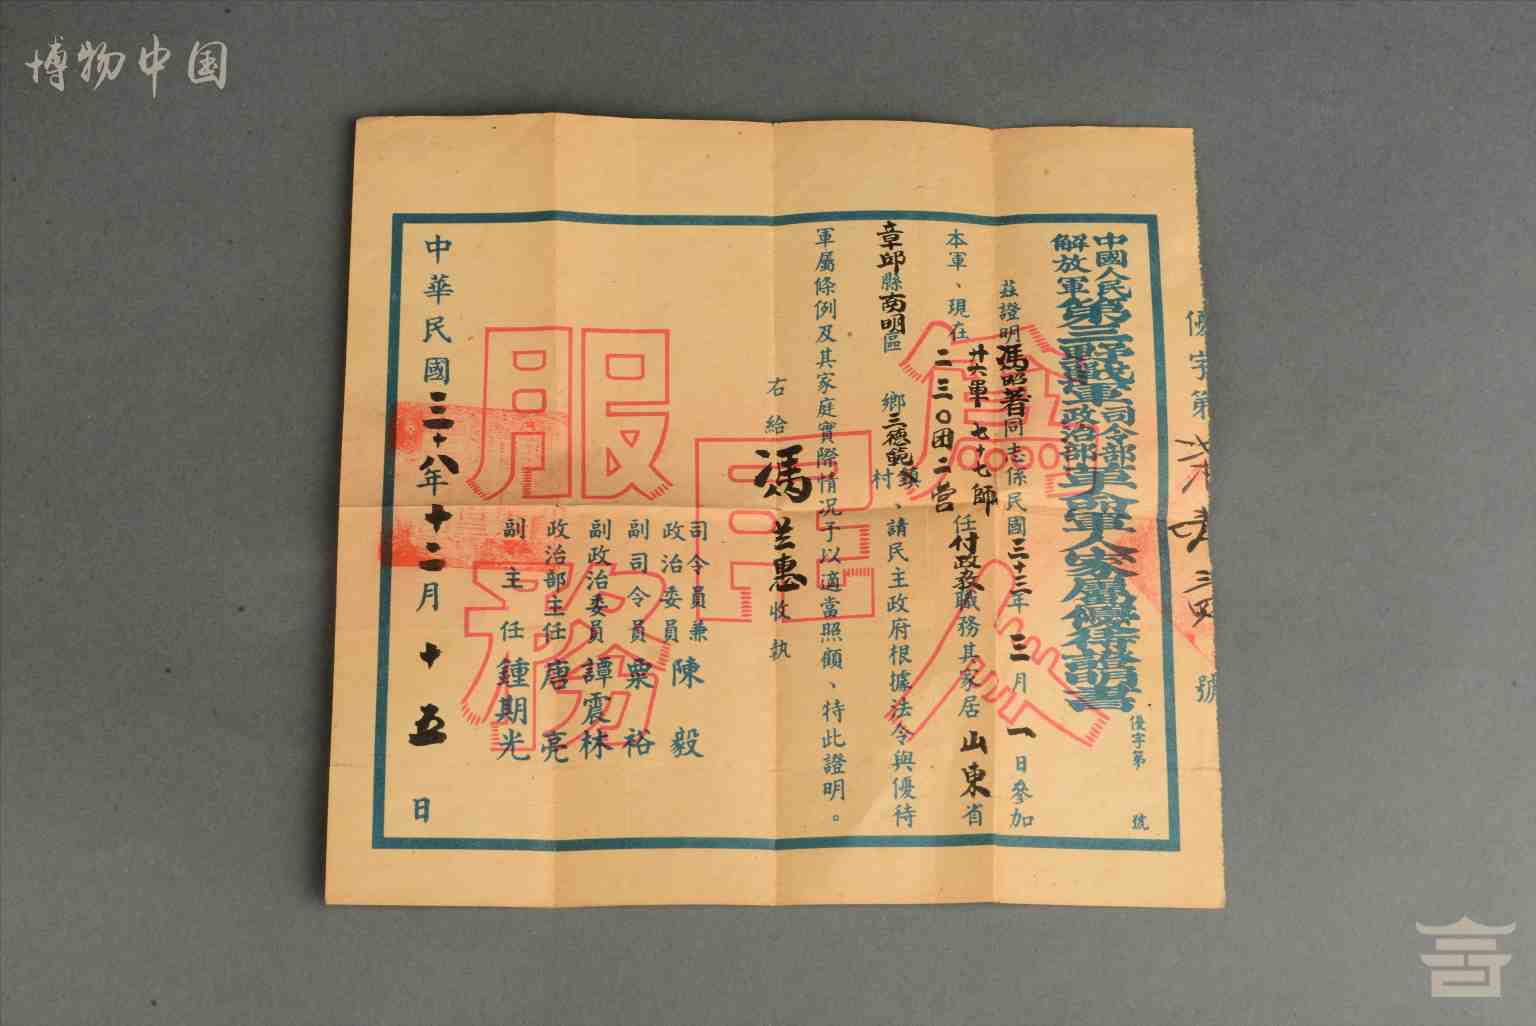 博物中国
優字第
三四
號
中國人民解放軍第三野戰軍司令部政治部革命軍人家屬優待證明書
優字第 號
茲證明馮昭著同志係民國三十三年三月一日參加
本軍、現在廿六軍七十七師二三〇团二营任付政教職務其家居山東省
章邱縣南明區 鄉三德範鎮村、請民主政府根據法令與優待
軍屬條例及其家庭實際情况予以適當照顧、特此證明。
右給馮兰惠收執
司令員兼政治委員陳毅
副司令員粟裕
副政治委員譚震林
政治部主任唐亮
副主任鍾期光
中華民國三十八年十二月十五日
為人民服務